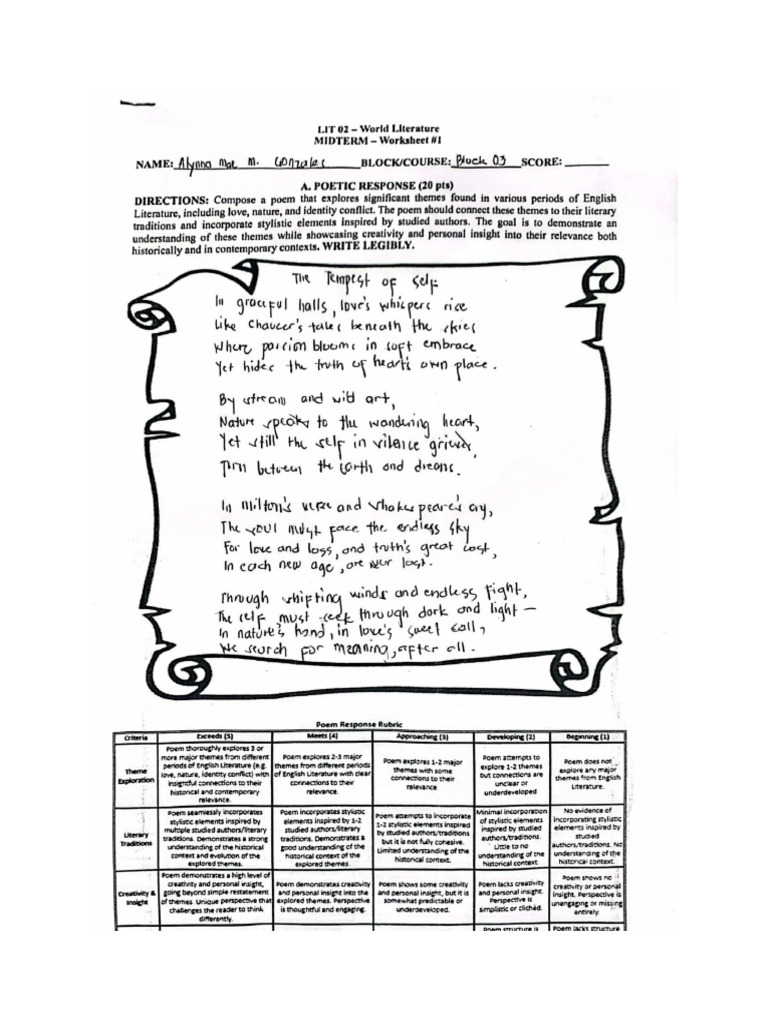 LIT 02 – World Literature
MIDTERM – Worksheet #1
NAME: Alynna Mae M. Gonzales BLOCK/COURSE: Block 03 SCORE:
A. POETIC RESPONSE (20 pts)
DIRECTIONS: Compose a poem that explores significant themes found in various periods of English
Literature, including love, nature, and identity conflict. The poem should connect these themes to their literary
traditions and incorporate stylistic elements inspired by studied authors. The goal is to demonstrate an
understanding of these themes while showcasing creativity and personal insight into their relevance both
historically and in contemporary contexts. WRITE LEGIBLY.
The Tempest of Self
In graceful halls, love's whispers rise
Like Chaucer's tales beneath the skies
Where passion blooms in soft embrace
Yet hides the truth of heart's own place.
By stream and wild art,
Nature speaks to the wandering heart,
Yet still the self in silence grieves,
Torn between the earth and dreams.
In Milton's verse and Shakespeare's cry,
The soul must face the endless sky
For love and loss, and truth's great cost,
In each new age, are never lost.
Through shifting winds and endless fight,
The self must seek through dark and light —
In nature's hand, in love's sweet call,
We search for meaning, after all.
Poem Response Rubric
Criteria Exceeds (5) Meets (4) Approaching (3) Developing (2) Beginning (1)
Theme Exploration
Poem thoroughly explores 3 or
more major themes from different
periods of English Literature (e.g.
love, nature, identity conflict) with
insightful connections to their
historical and contemporary
relevance.
Poem explores 2-3 major
themes from different periods
of English Literature with clear
connections to their
relevance.
Poem explores 1-2 major
themes with some
connections to their
relevance
Poem attempts to
explore 1-2 themes
but connections are
unclear or
underdeveloped
Poem does not
explore any major
themes from English
Literature.
Literary
Traditions
Poem seamlessly incorporates
stylistic elements inspired by
multiple studied authors/literary
traditions. Demonstrates a strong
understanding of the historical
context and evolution of the
explored themes.
Poem incorporates stylistic
elements inspired by 1-2
studied authors/literary
traditions. Demonstrates a
good understanding of the
historical context of the
explored themes.
Poem attempts to incorporate
1-2 stylistic elements inspired
by studied authors/traditions
but it is not fully cohesive.
Limited understanding of the
historical context.
Minimal incorporation
of stylistic elements
inspired by studied
authors/traditions.
Little to no
understanding of the
historical context.
No evidence of
incorporating stylistic
elements inspired by
studied
authors/traditions. No
understanding of the
historical context.
Creativity &
Insight
Poem demonstrates a high level of
creativity and personal insight,
going beyond simple restatement
of themes. Unique perspective that
challenges the reader to think
differently.
Poem demonstrates creativity
and personal insight into the
explored themes. Perspective
is thoughtful and engaging.
Poem shows some creativity
and personal insight, but it is
somewhat predictable or
underdeveloped.
Poem lacks creativity
and personal insight.
Perspective is
simplistic or clichéd.
Poem shows no
creativity or personal
insight. Perspective is
unengaging or missing
entirely.
Poem structure is
Poem lacks structure